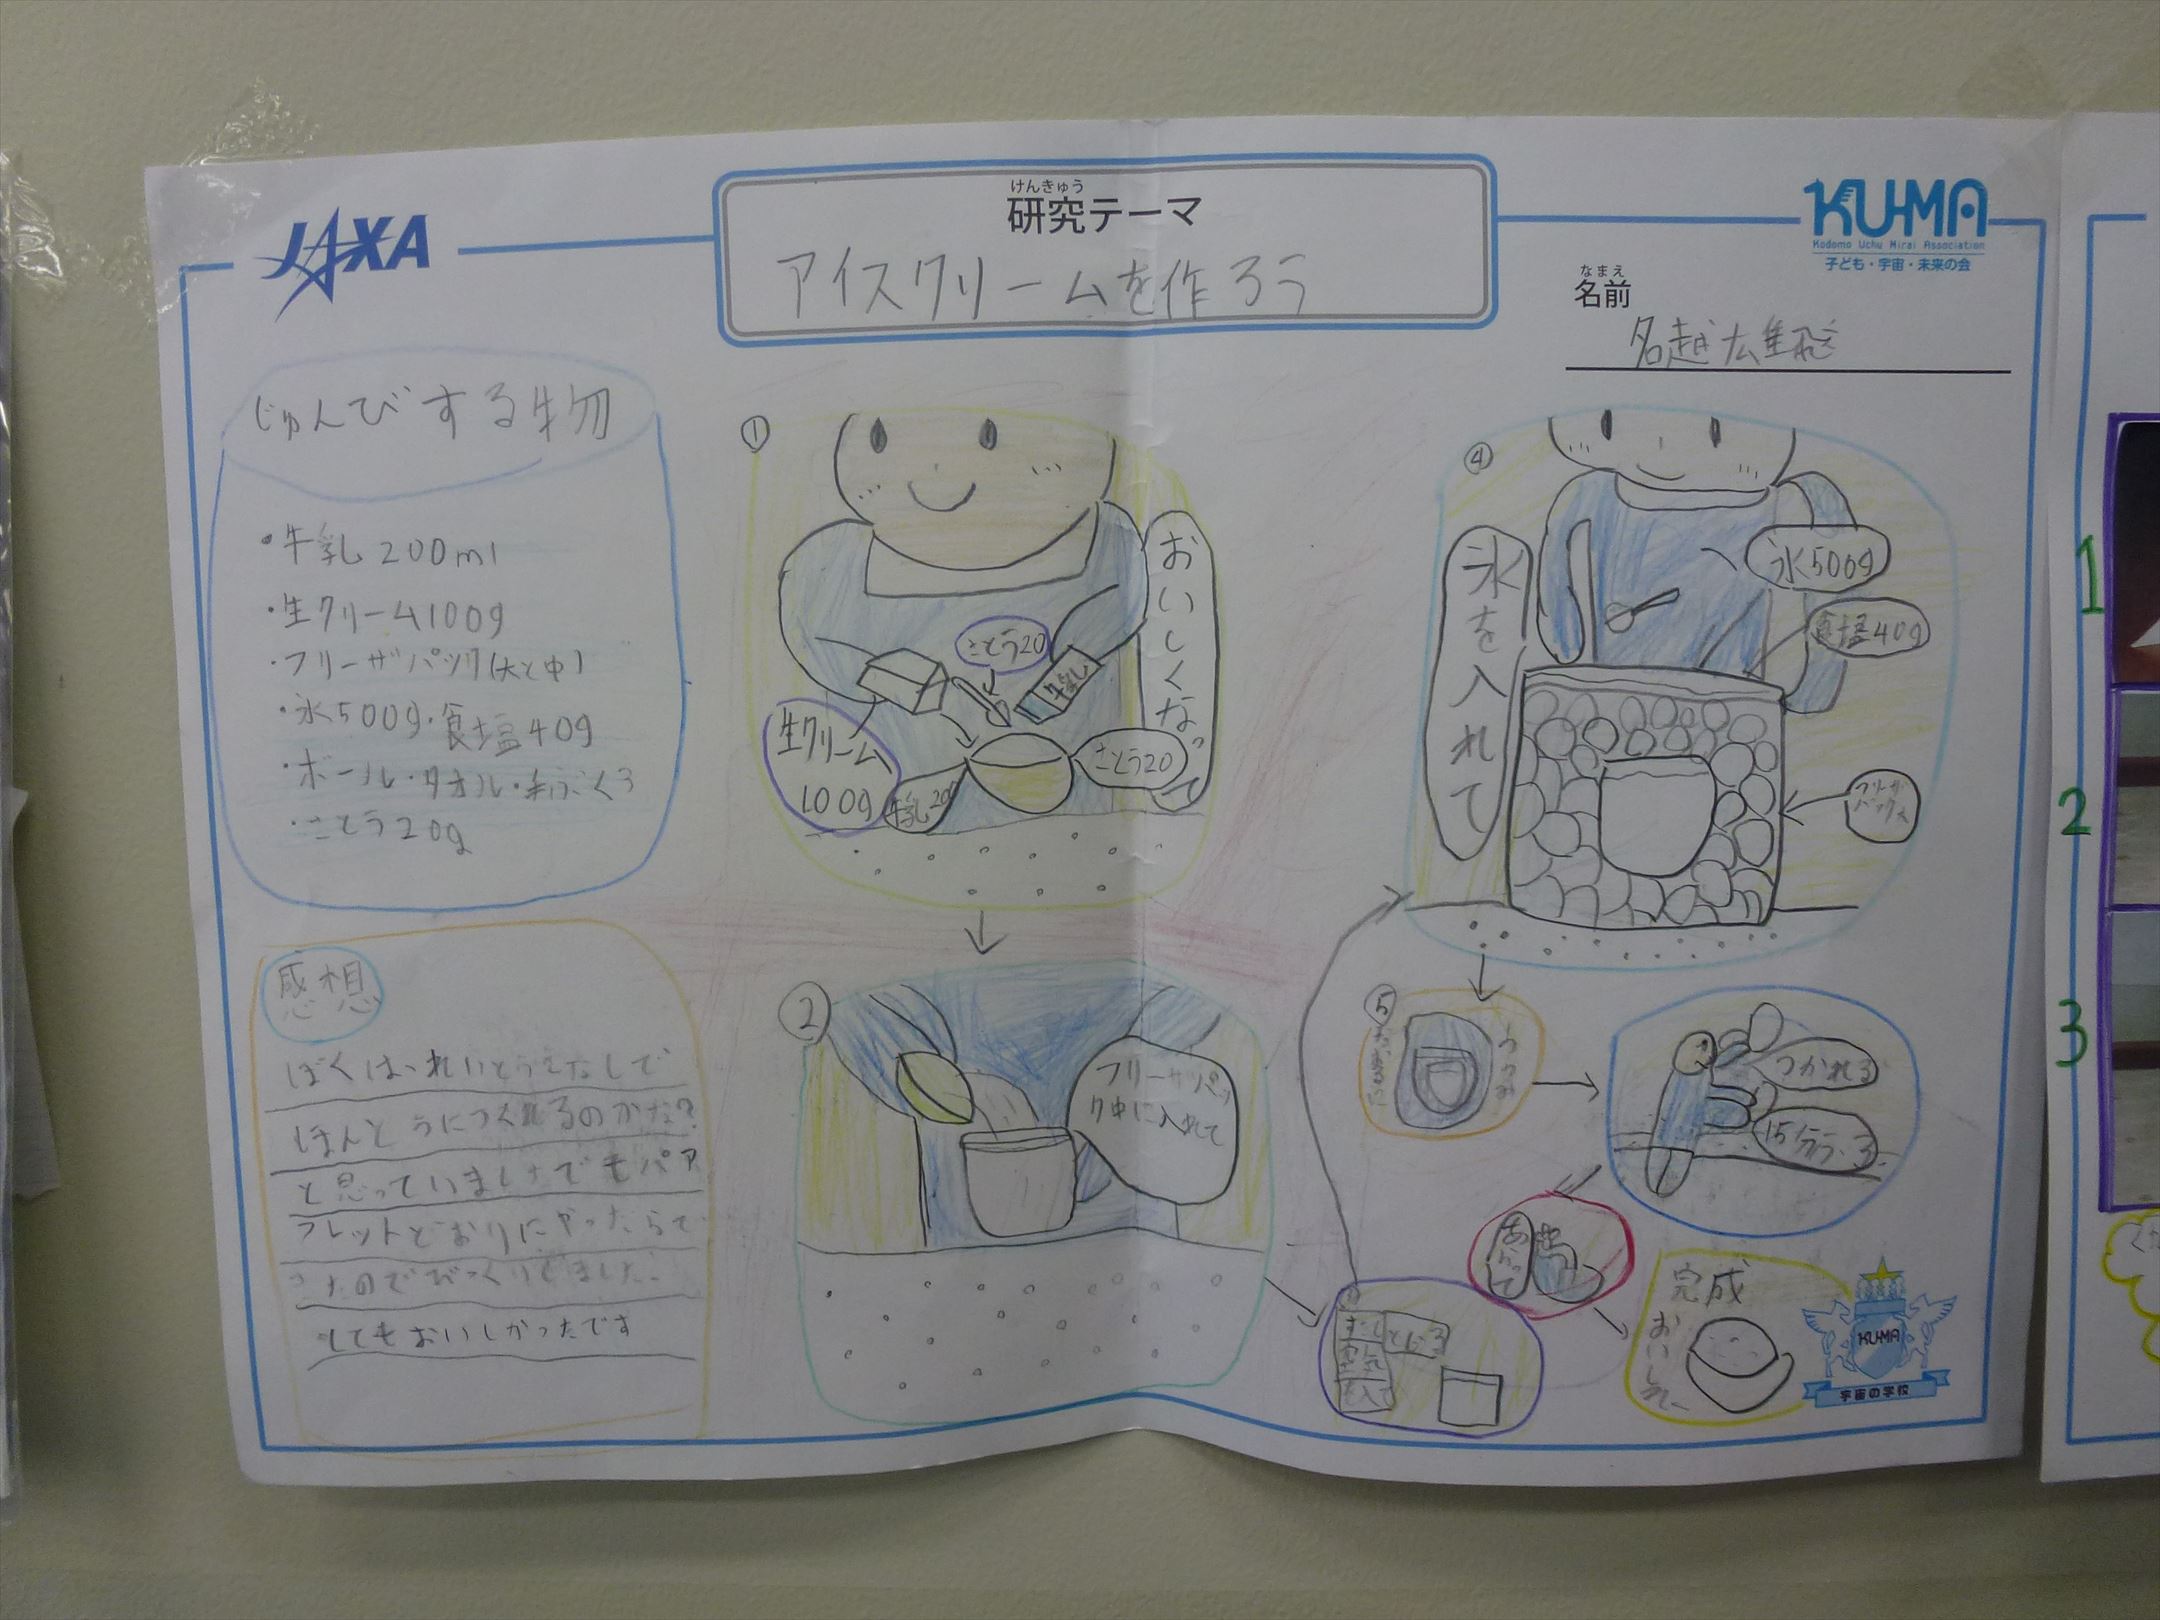 JAXA
けんきゅう
研究テーマ
アイスクリームを作ろう
KU-MA
Kodomo Uchu Mirai Association
子ども・宇宙・未来の会
なまえ
名前
じゅんびする物
・牛乳200ml
・生クリーム100g
・フリーザパック(大と中)
・氷500g・食塩40g
・ボール・タオル・手ぶくろ
・さとう20g
感想
ぼくは、れいとうこなしで
ほんとうにつくれるのかな?
と思っていましたでもパア
フレットどおりにやったらで
きたのでびっくりしました。
とてもおいしかったです
①
おいしくなって
さとう20
牛乳
生クリーム
100g
牛乳200
さとう20
②
フリーザパッ
ク中に入れて
④
氷を入れて
氷500g
食塩40g
フリーザ
パック大
⑤
つつみ
つかれる
15分ふる
あらって
完成
おいしー
KU-MA
宇宙の学校
1
2
3